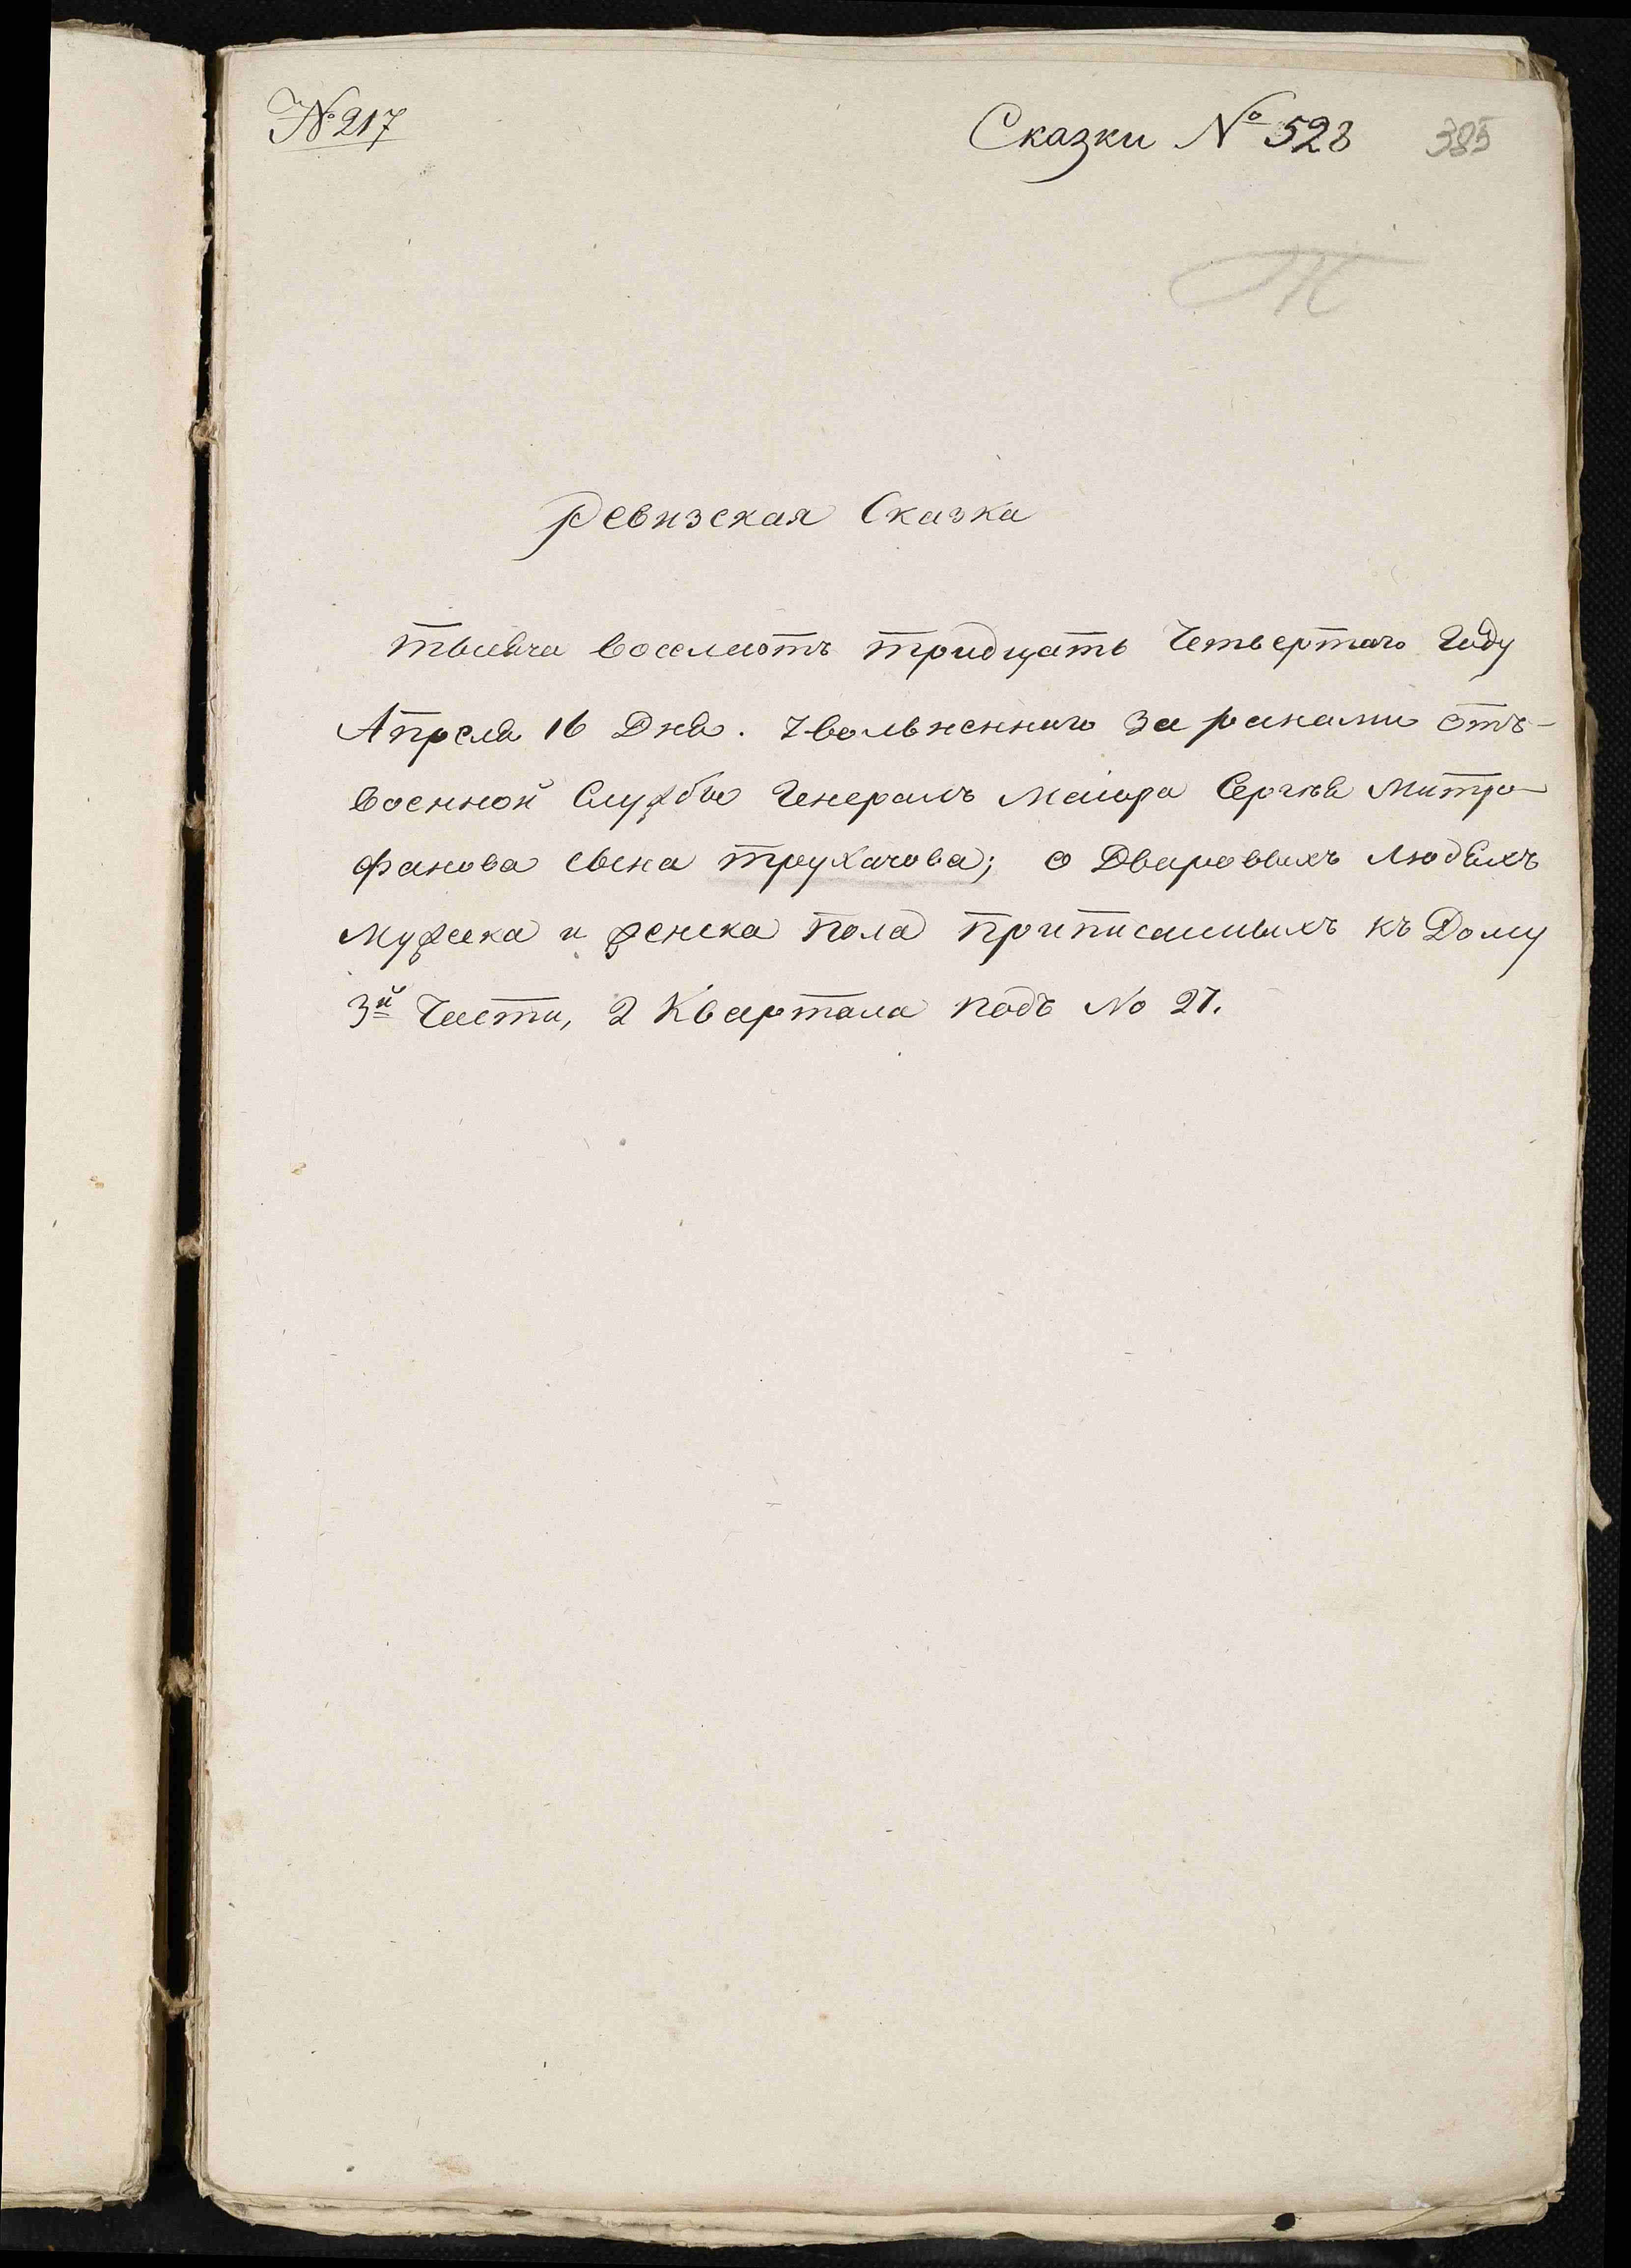 № 217
Сказки № 528 385
Т
Ревизская Сказка
тысяча восемьсотъ тридцать Четвертаго Году
Апреля 16 Дня. Увольненнаго За ранами Отъ-
Военной Службы Генералъ Маiора Сергѣя Митро-
фанова сына трухачова; о Дваровыхъ Людяхъ
Мужеска и женска пола приписанныхъ къ Дому
3й Части, 2 Квартала подъ No 27.